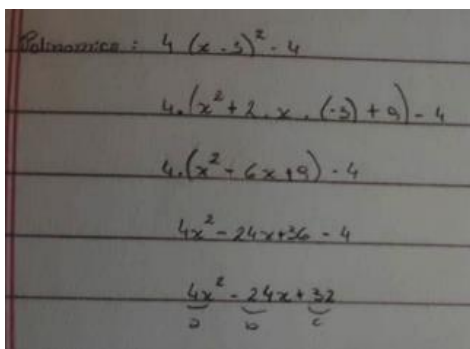 Polinomica: 4 (x - 3)² - 4
4.(x² + 2 . x . (-3) + 9) - 4
4.(x² - 6x + 9) - 4
4x² - 24x + 36 - 4
4x² - 24x + 32
a b c